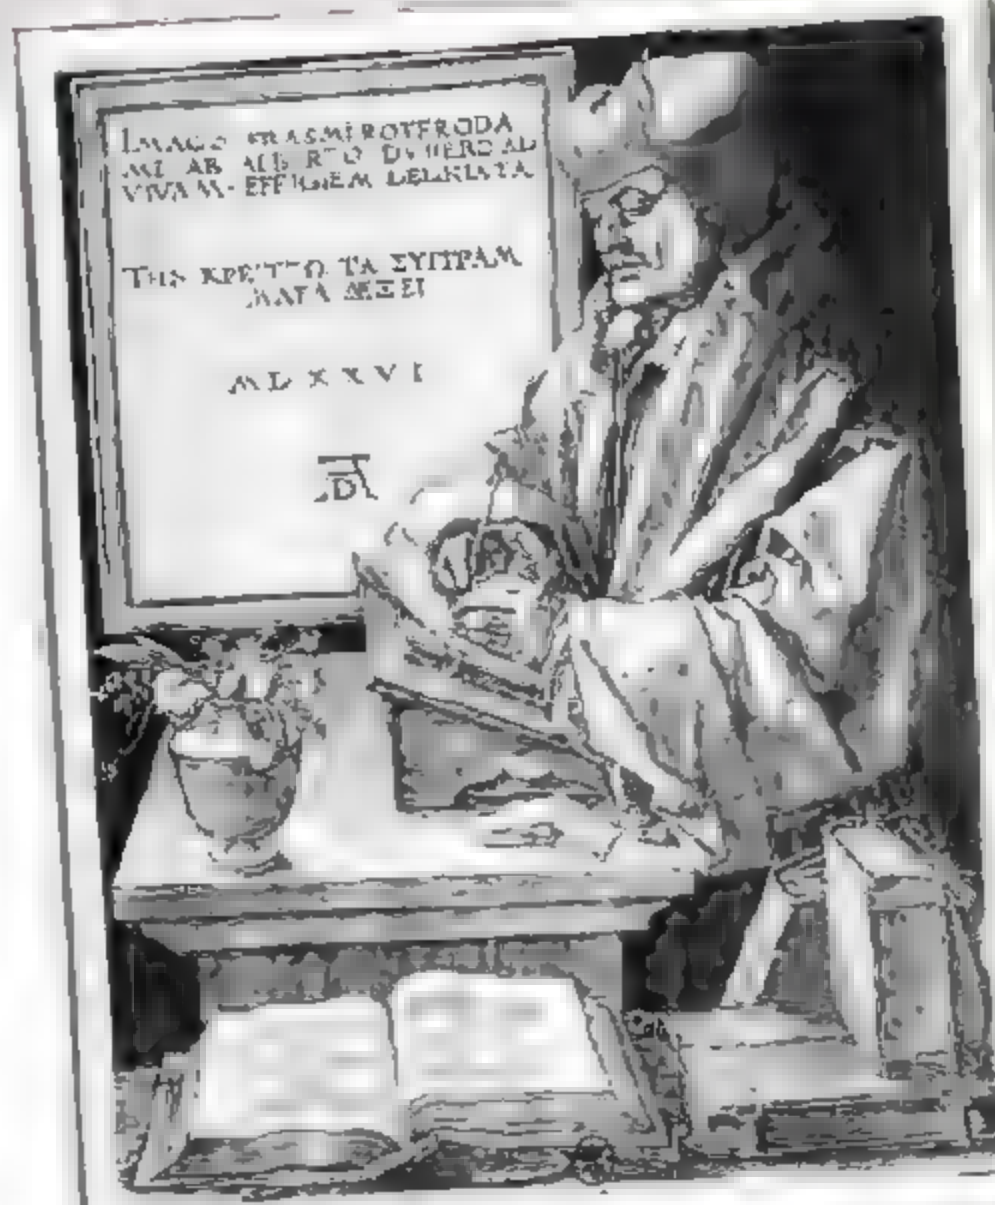 IMAGO ERASMI ROTERODA
MI AB ALBERTO DVRERO AD
VIVAM EFFIGIEM DELINIATA
ΤΗΝ ΚΡΕΙΤΤΩ ΤΑ ΣΥΓΓΡΑΜ
ΜΑΤΑ ΔΕΙΞΕΙ
MDXXVI
AD